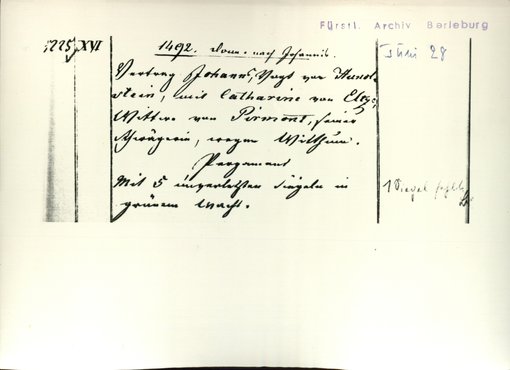 Fürstl. Archiv Berleburg
5225 XVI
1492. Donn. nach Johannis.
Juni 28
Vertrag Johanns, Vogt von Hunol-
stein, mit Catharine von Eltz,
Wittwe von Pirmont, seiner
Schwägerin, wegen Witthum.
Pergament
Mit 5 unverletzten Siegeln in
grünem Wachs.
1 Siegel fehlt